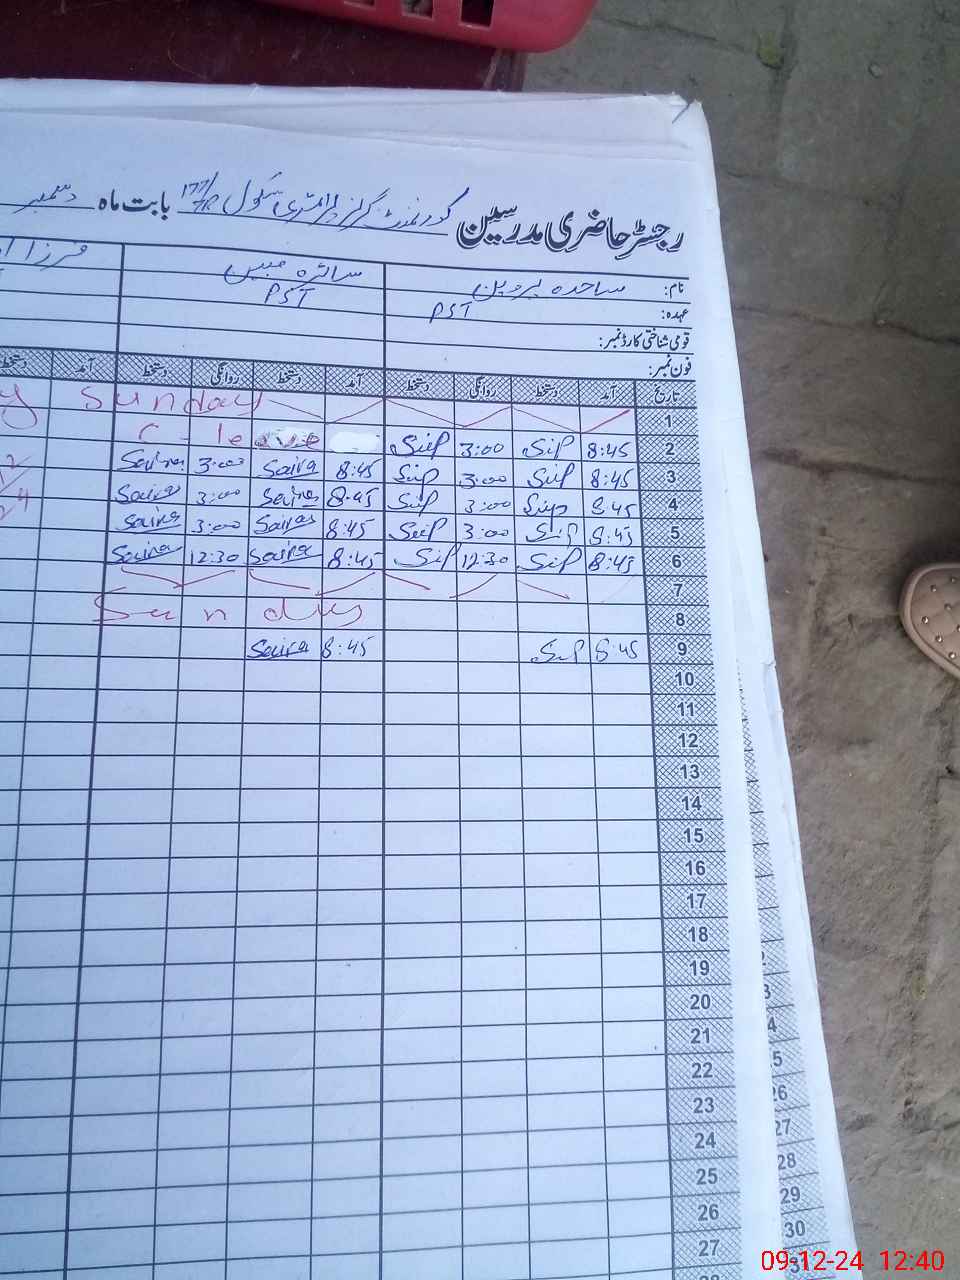 رجسٹر حاضری مدرسین گورنمنٹ گرلز پرائمری سکول 177/7R بابت ماہ دسمبر
نام: ساجدہ پروین سائرہ مبین
عہدہ: PST PST
قومی شناختی کارڈ نمبر:
فون نمبر:
تاریخ آمد دستخط روانگی دستخط آمد دستخط روانگی دستخط آمد دستخط
1 Sunday
2 8:45 3:00 C-leave
3 8:45 3:00 8:45 Saira 3:00 Saira
4 8:45 3:00 8:45 Saira 3:00 Saira
5 8:45 3:00 8:45 Saira 3:00 Saira
6 8:45 12:30 8:45 Saira 12:30 Saira
7
8 Sunday
9 8:45 8:45 Saira
10
11
12
13
14
15
16
17
18
19
20
21
22
23
24
25
26
27
28
26
27
28
29
30
31
09-12-24 12:40